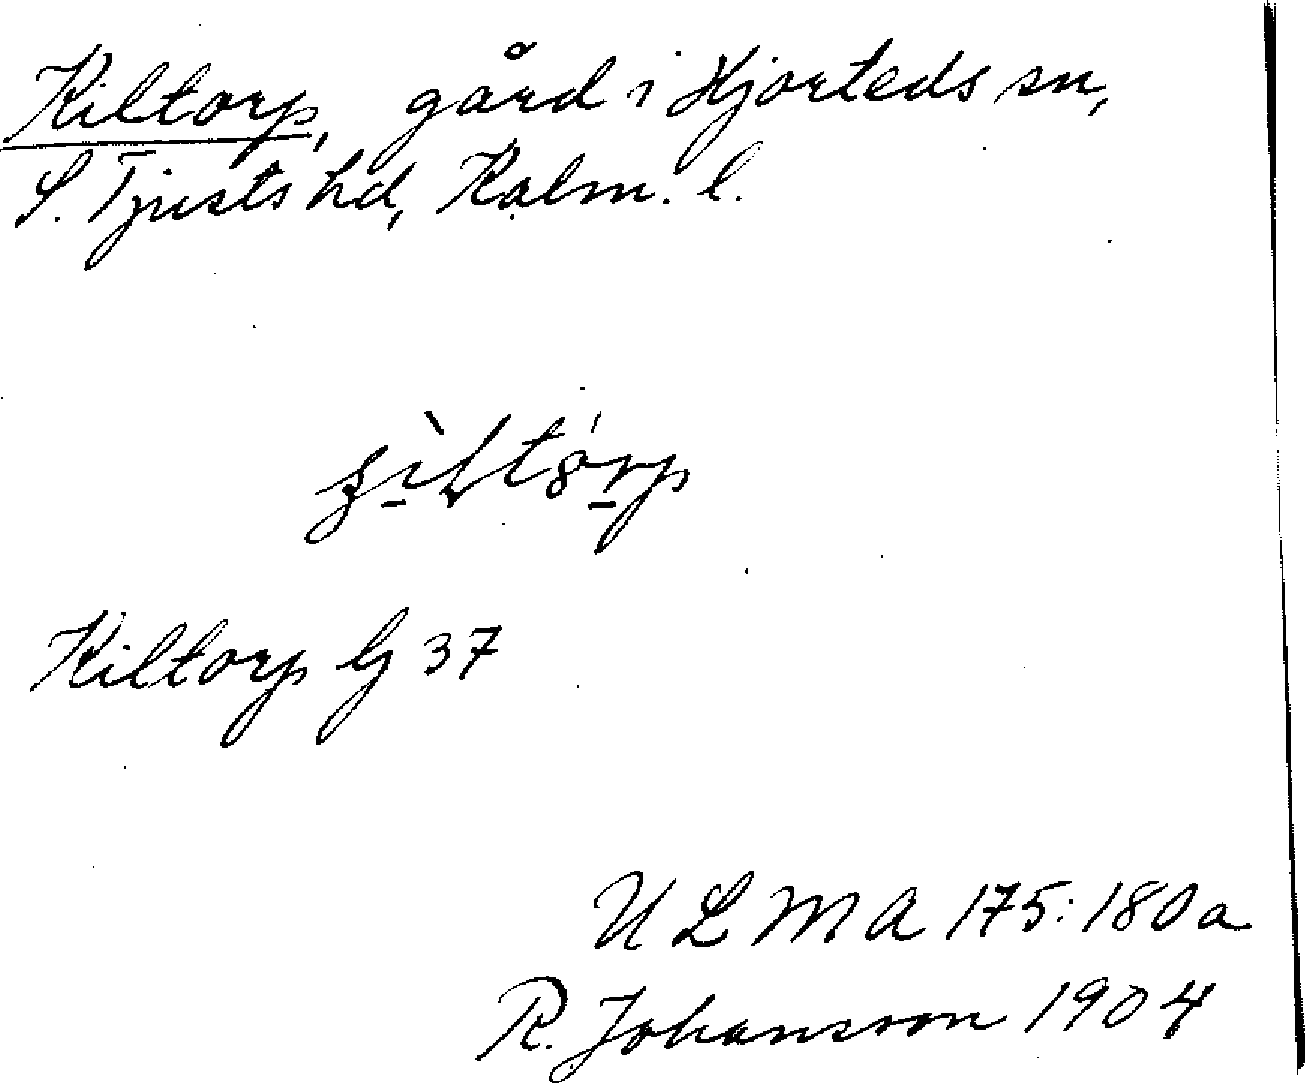 Kiltorp, gård i Hjorteds sn,
S. Tjusts hd, Kalm. l.
Kiltorp G 37
U L M A 175:180a
R. Johansson 1904